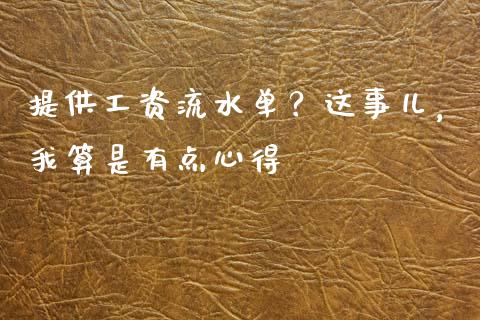 提供工资流水单？这事儿，
我算是有点心得